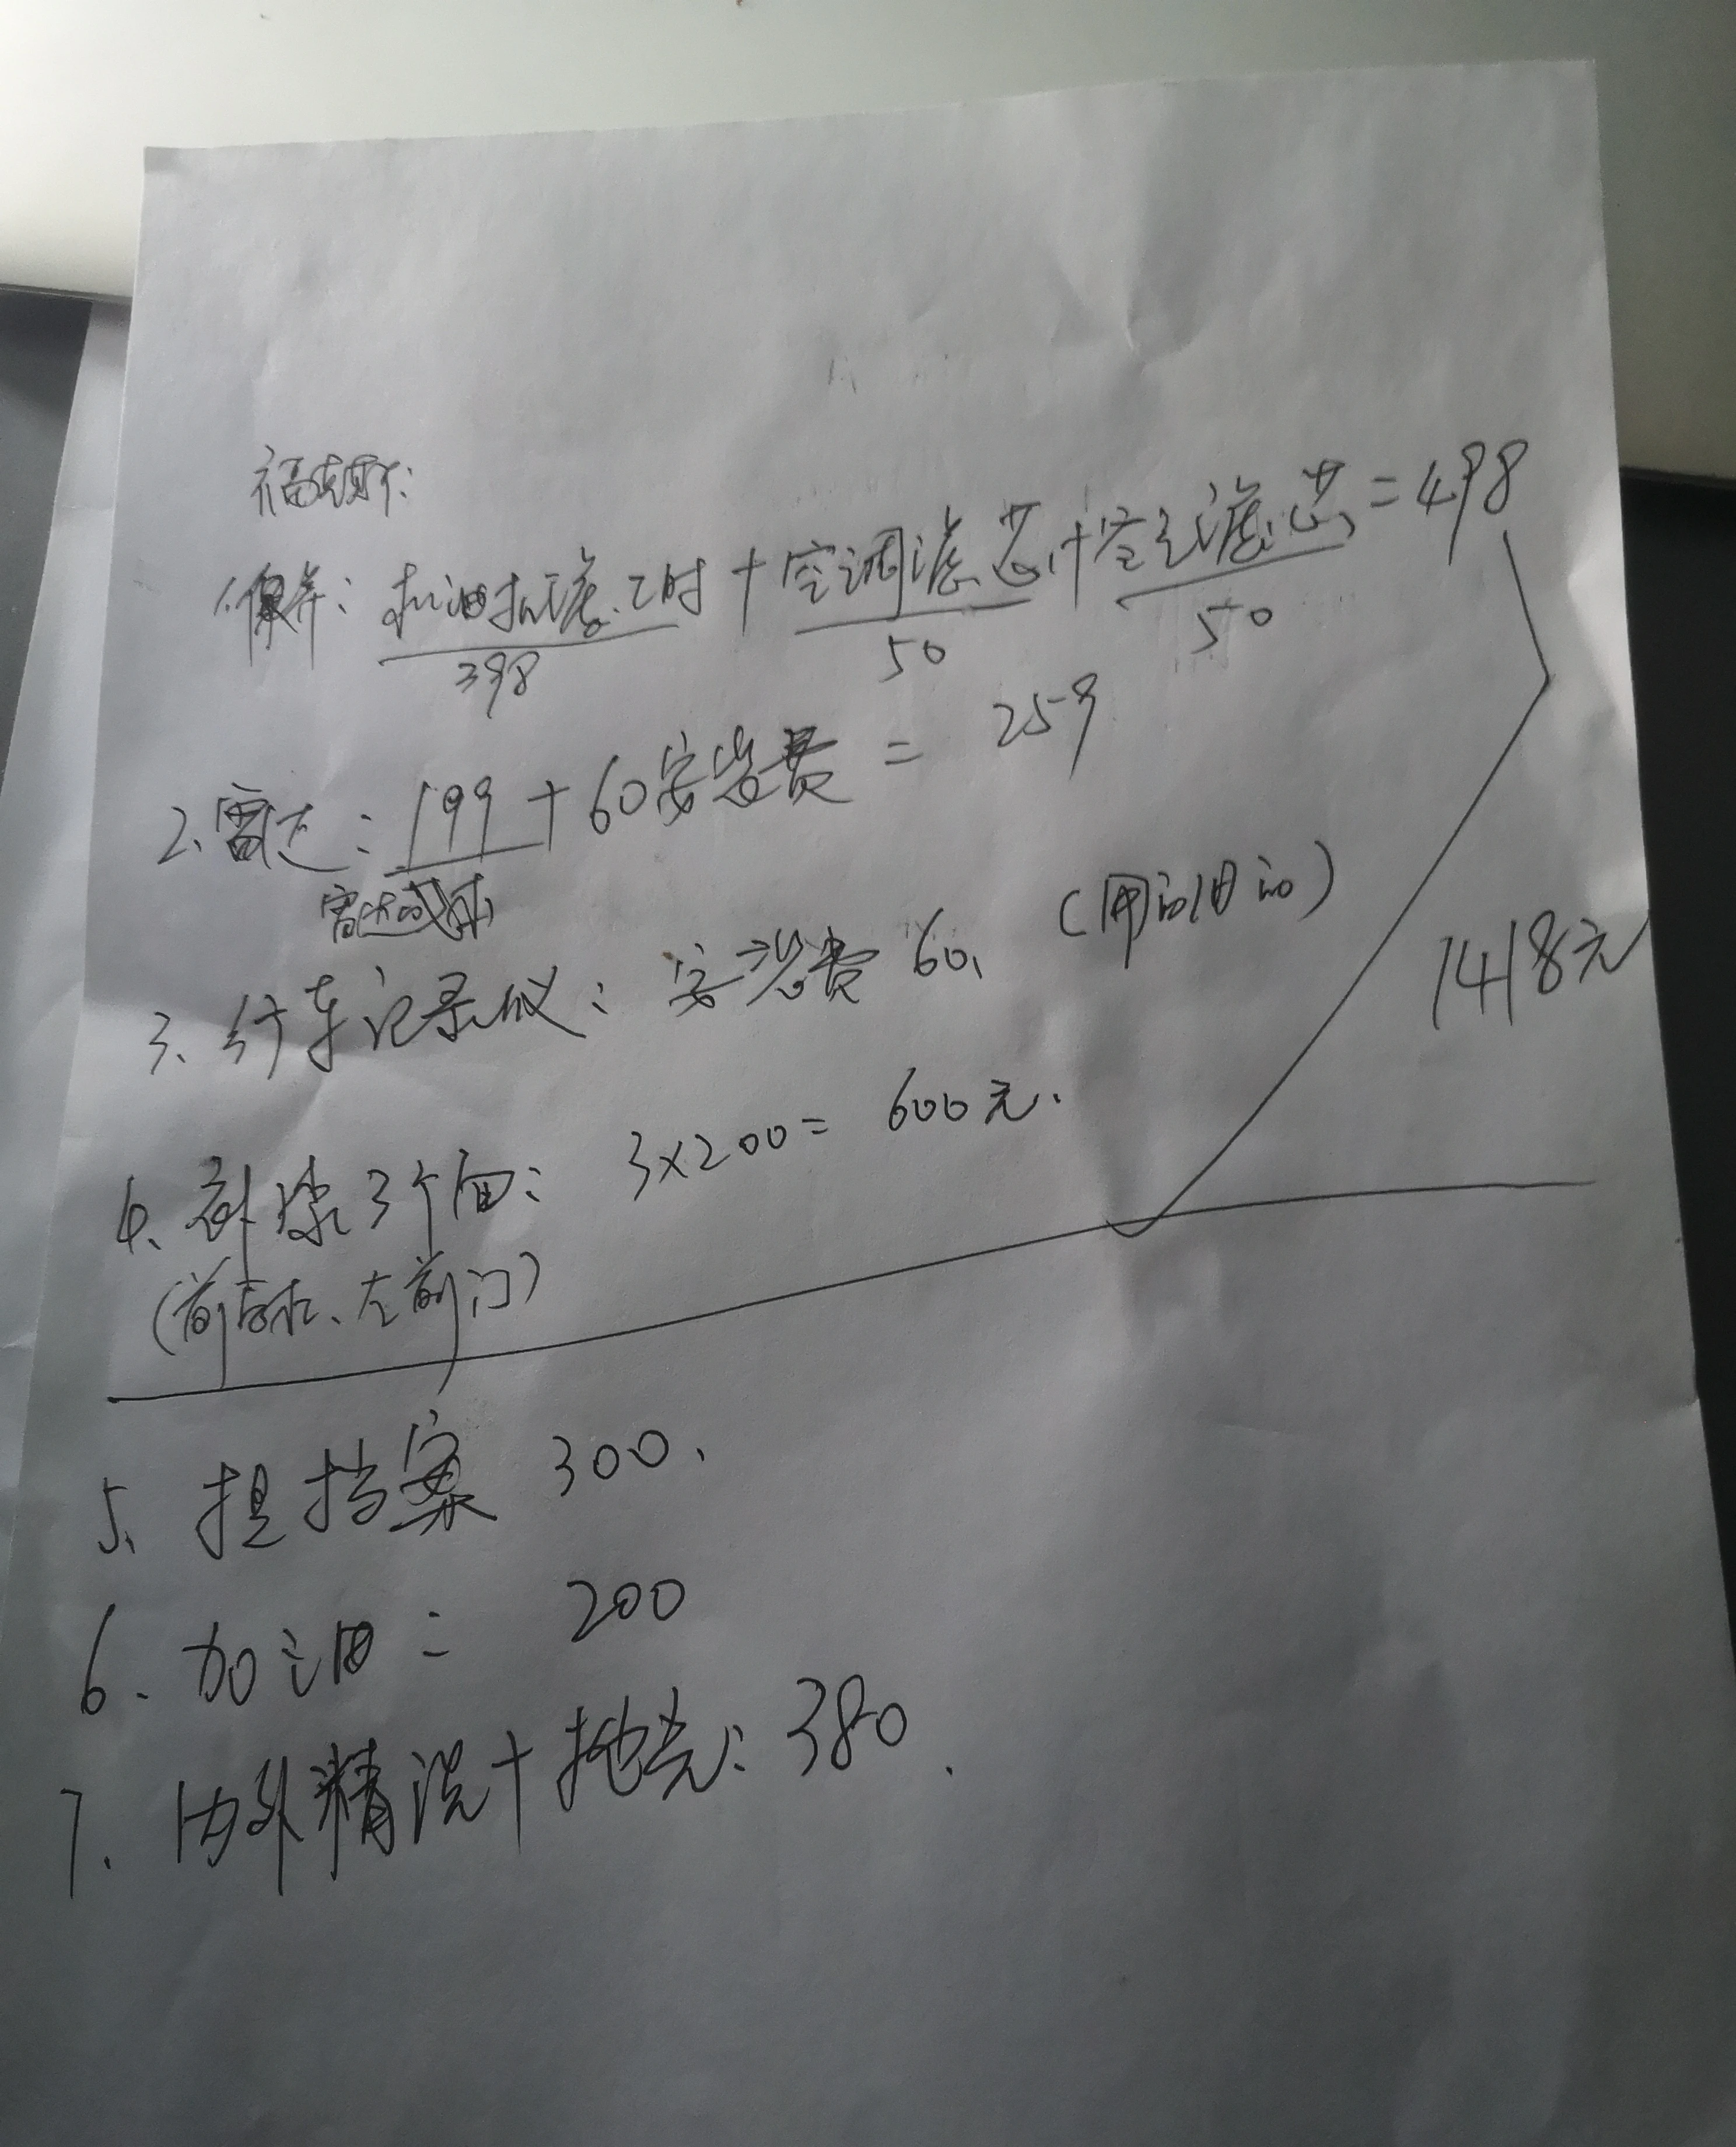 福克斯:
1.保养: 机油机滤工时 + 空调滤芯 + 空气滤芯 = 498
398 50 50
2、雷达: 199 + 60安装费 = 259
雷达成本
3、行车记录仪: 安装费 60、 (用的旧的)
1418元
4、补漆3个面: 3×200= 600元.
(前后杠、左前门)
5、提挡案 300、
6、加油: 200
7、内外精洗+抛光: 380.